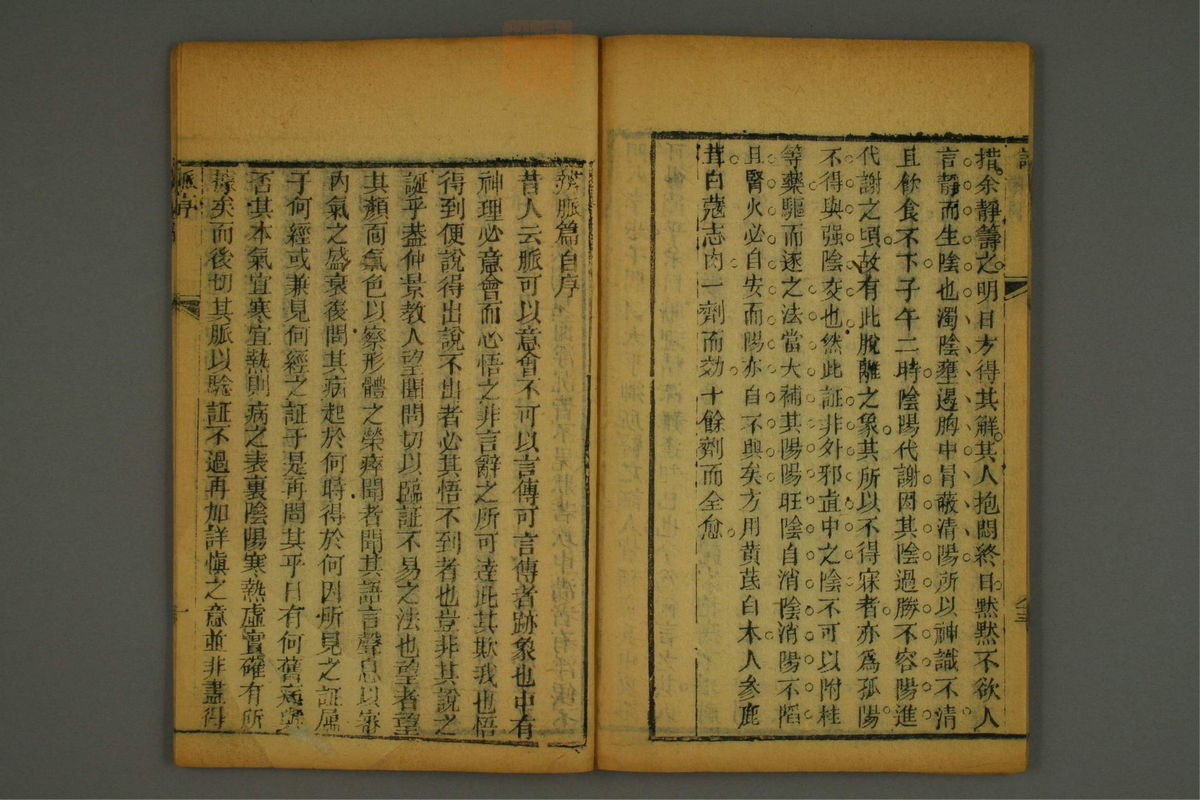 措余靜籌之明日方得其解其人抱悶終日黙黙不欲人
言靜而生陰也濁陰壅遏胸中冒蔽清陽所以神識不清
且飲食不下子午二時陰陽代謝因其陰過勝不容陽進
代謝之頃故有此脫離之象其所以不得寐者亦為孤陽
不得與强陰交也然此証非外邪直中之陰不可以附桂
等藥驅而逐之法當大補其陽陽旺陰自消陰消陽不陷
且腎火必自安而陽亦自不興矣方用黄茋白木人參鹿
茸白蔻志肉一劑而効十餘劑而全愈
脈篇自序
昔人云脈可以意會不可以言傳可言傳者跡象也中有
神理必意會而心悟之非言辭之所可達此其欺我也悟
得到便說得出說不出者必其悟不到者也豈非其說之
誕乎葢仲景教人望聞問切以臨証不易之法也望者望
其顏面氣色以察形體之榮瘁聞者聞其語言聲息以審
內氣之盛衰後問其病起於何時得於何因所見之証属
于何經或兼見何經之証于是再問其平日有何舊病
否其本氣宜寒宜熱則病之表裏陰陽寒熱虛實確有所
據矣而後切其脈以騐証不過再加詳慎之意並非盡得
脈序